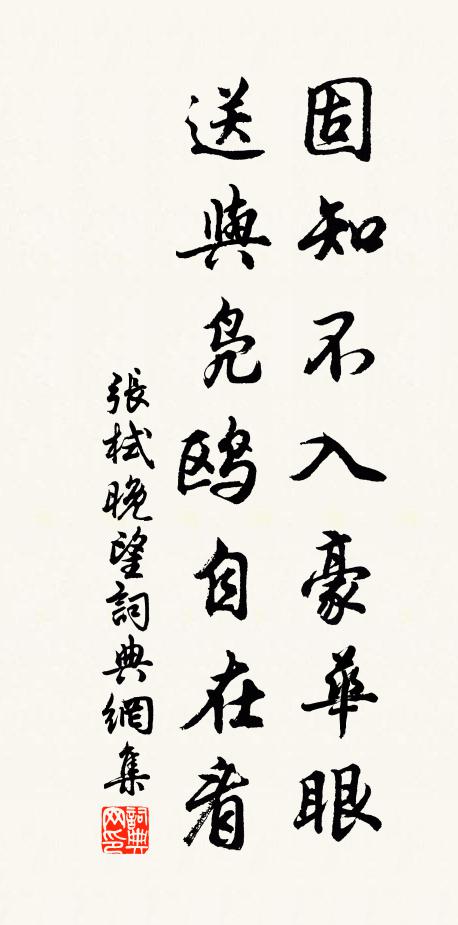 固知不入豪華眼
送與鳬鷗自在看
張栻晚望詞典網集
詞典网印